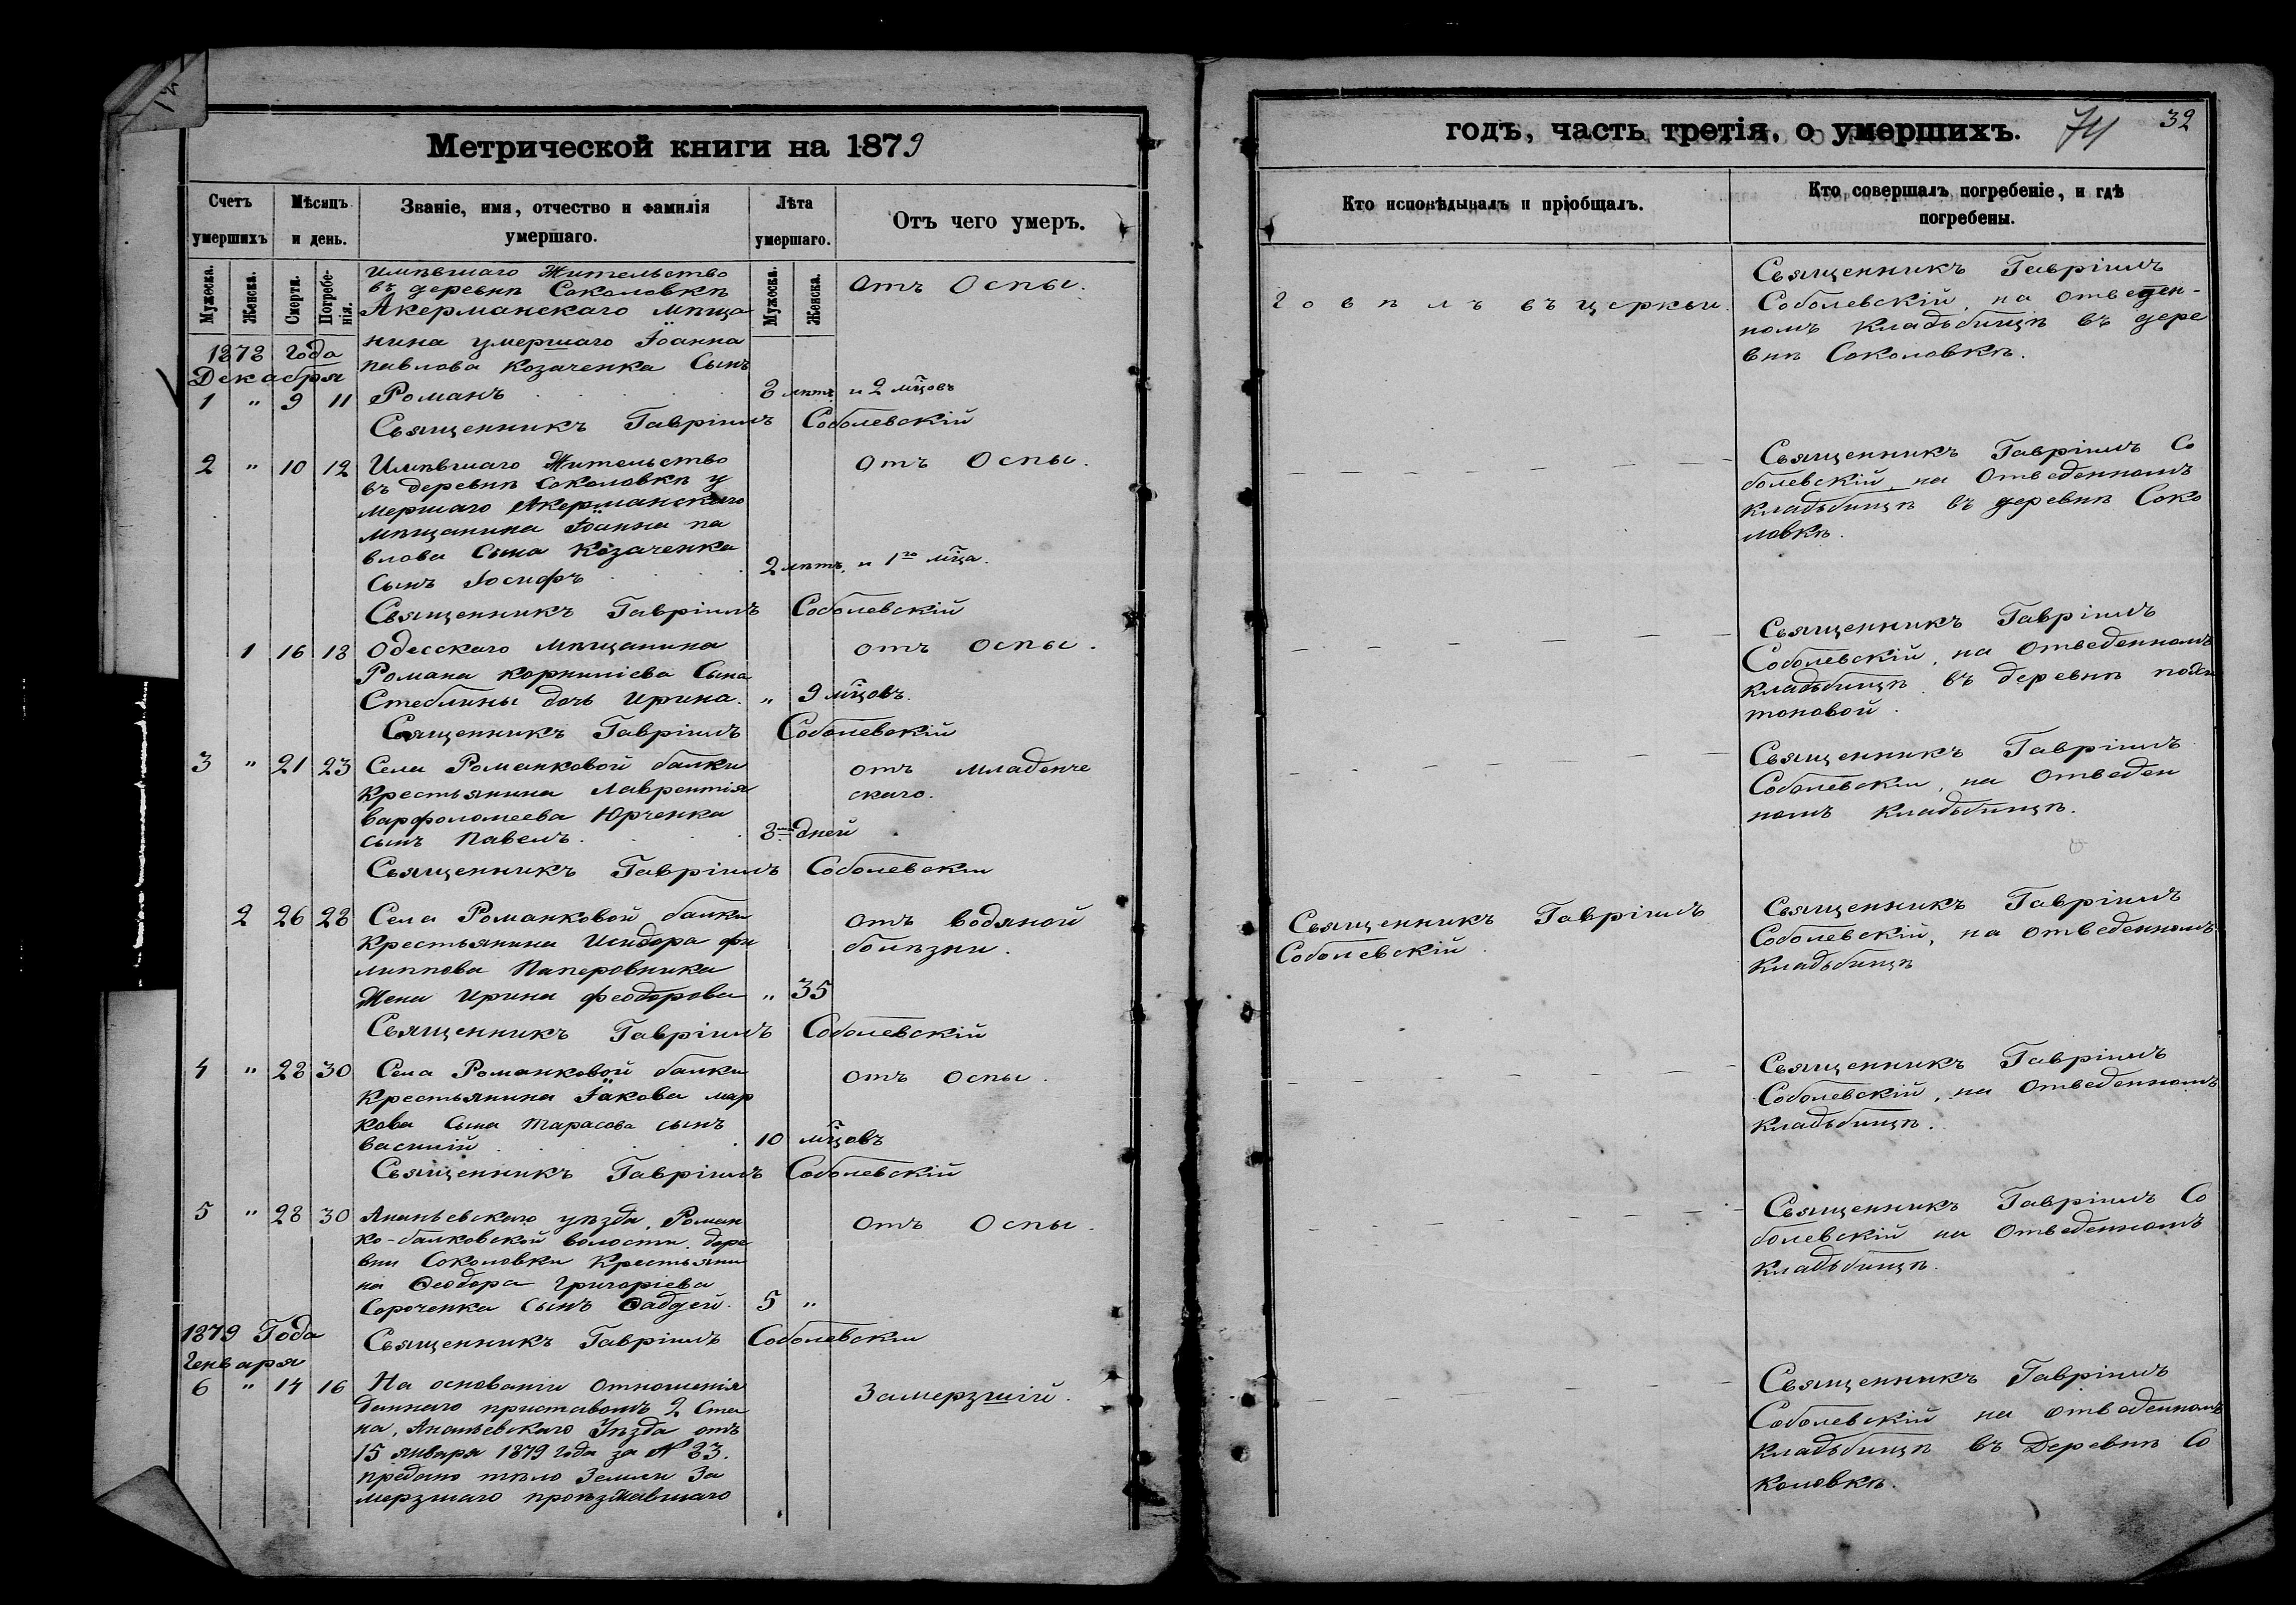 Метрической книги на 1879
Счетъ умершихъ
Мѣсяцъ и день.
Званіе, имя, отчество и фамилія умершаго.
Лѣта умершаго.
Отъ чего умеръ.
Мужеска.
Женска.
Смерти.
Погребенія.
Мужеска.
Женска.
1878 года
Декабря
1 " 9 11
имѣвшаго Жительство
въ деревнѣ Соколовкѣ
Акерманскаго мѣща
нина умершаго Іоанна
павлова Козаченка Сынъ
Романъ
8 лѣтъ и 2 мѣцовъ
отъ Оспы.
Священникъ Гавріилъ Соболевскій
2 " 10 12
Имѣвшаго Жительство
въ деревнѣ Соколовкѣ у
мершаго Акерманскаго
мѣщанина Іоанна па
влова Сына Козаченка
Сынъ Іосифъ
2 лѣтъ и 1го мѣца.
отъ Оспы.
Священникъ Гавріилъ Соболевскій
1 16 18
Одесскаго мѣщанина
Романа корниліева Сына
Стеблины дочь Ирина.
" 9 мѣцовъ.
отъ Оспы.
Священникъ Гавріилъ Соболевскій
3 " 21 23
Села Романковой балки
крестьянина Лаврентія
варфоломеева Юрченка
сынъ Павелъ.
8 дней
отъ младенче
скаго.
Священникъ Гавріилъ Соболевскій
2 26 28
Села Романковой балки
крестьянина Исидора фи
липпова Паперовника
Жена Ирина феодорова
" 35
отъ водяной
болѣзни.
Священникъ Гавріилъ Соболевскій
4 " 28 30
Села Романковой балки
крестьянина Іакова мар
кова Сына Тарасова сынъ
василій
10 мѣцовъ
отъ оспы.
Священникъ Гавріилъ Соболевскій
5 " 28 30
Ананьевскаго уѣзда, Роман
ко-балковской волости дере
вни Соколовки крестьяни
на Ѳеодора Григоріева
Сороченка Сынъ Ѳаддей.
5 "
отъ Оспы.
Священникъ Гавріилъ Соболевскій
1879 Года
Генваря
6 " 14 16
На основаніи Отношенія
даннаго приставомъ 2 Ста
на, Ананьевскаго Уѣзда отъ
15 января 1879 года за N 83.
предано тѣло Земли За
мерзшаго проѣзжавшаго
Замерзшій.
годъ, часть третія, о умершихъ.
74
32
Кто исповѣдывалъ и пріобщалъ.
Кто совершалъ погребеніе, и гдѣ
погребены.
Говѣлъ въ церкви.
Священникъ Гавріилъ
Соболевскій, на отведен-
номъ кладьбищѣ въ дере
внѣ Соколовкѣ.
Священникъ Гавріилъ Со
болевскій, на Отведенномъ
кладьбищѣ въ деревнѣ Соко
ловкѣ.
Священникъ Гавріилъ
Соболевскій, на отведенномъ
кладьбищѣ въ деревнѣ
Священникъ Гавріилъ
Соболевскій, на Отведен
номъ кладьбищѣ.
Священникъ Гавріилъ
Соболевскій.
Священникъ Гавріилъ
Соболевскій, на отведенномъ
кладьбищѣ
Священникъ Гавріилъ
Соболевскій, на Отведенномъ
кладьбищѣ.
Священникъ Гавріилъ Со
болевскій на Отведенномъ
кладьбищѣ.
Священникъ Гавріилъ
Соболевскій на отведенномъ
кладьбищѣ въ Деревнѣ Со
коловкѣ.